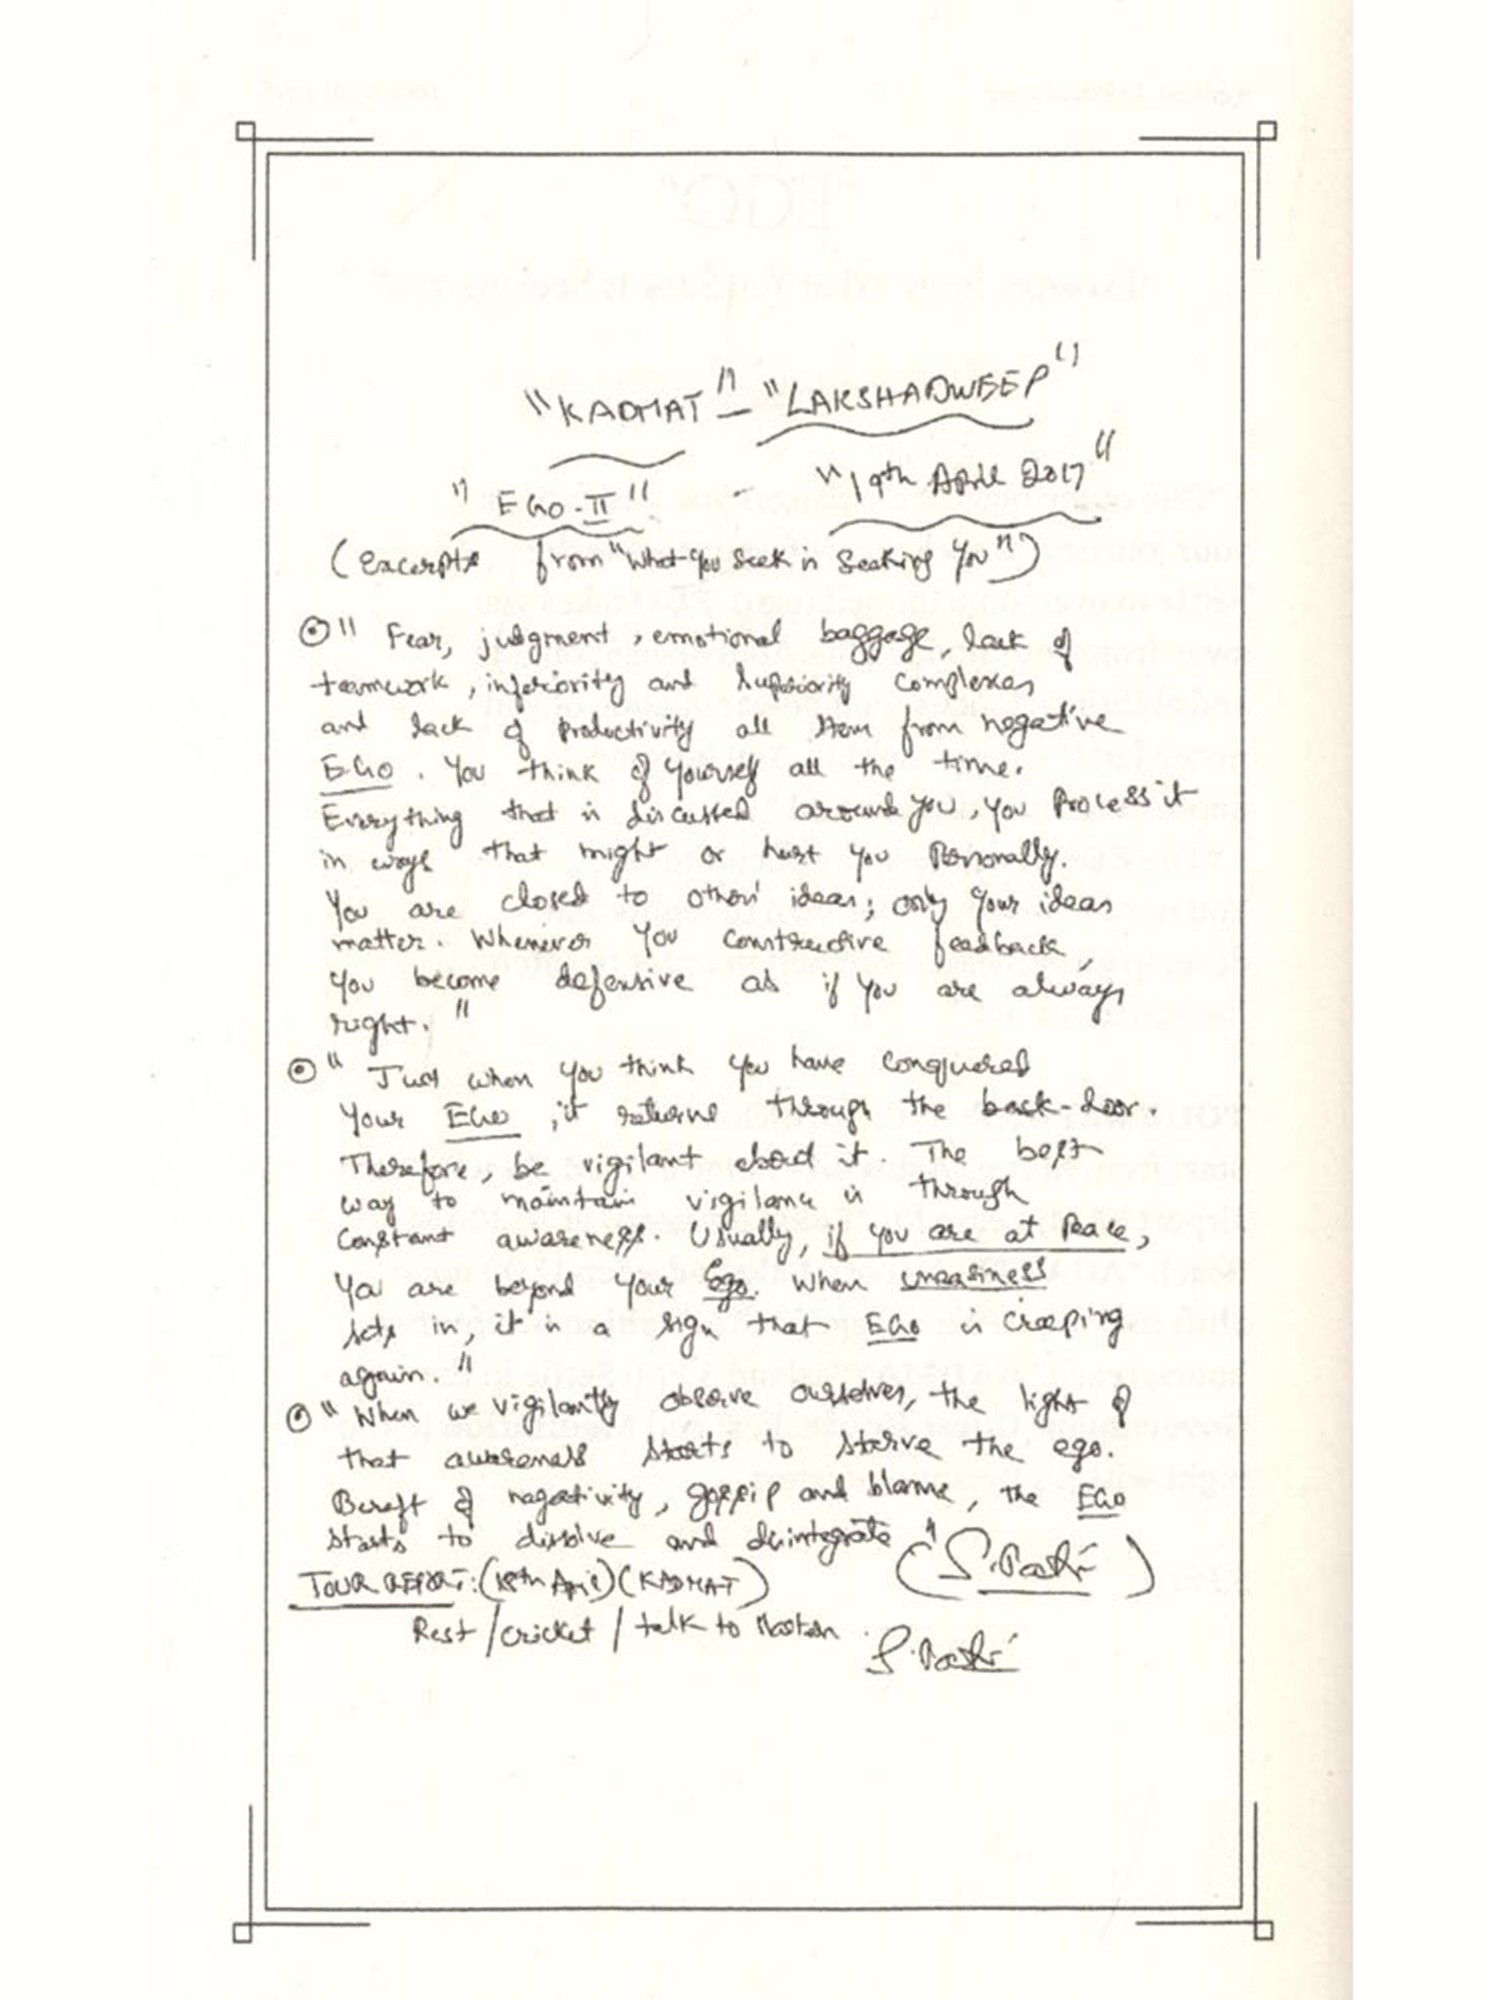 "KADMAT" - "LAKSHADWEEP"
"EGO-II" - "19th April 2017"
(Excerpts from "What You Seek is Seeking You")
" Fear, judgment, emotional baggage, lack of
teamwork, inferiority and superiority complexes
and lack of productivity all stem from negative
EGO. You think of yourself all the time.
Everything that is discussed around you, you process it
in ways that might or hurt you personally.
You are closed to others' ideas; only your ideas
matter. Whenever you constructive feedback
you become defensive as if you are always
right."
" Just when you think you have conquered
your EGO, it returns through the back-door.
Therefore, be vigilant about it. The best
way to maintain vigilance is through
constant awareness. Usually, if you are at peace,
you are beyond your Ego. When uneasiness
sets in, it is a sign that EGO is creeping
again"
" When we vigilantly observe ourselves, the light of
that awareness starts to starve the ego.
Bereft of negativity, gossip and blame, the EGO
starts to dissolve and disintegrate"
TOUR REPORT: (18th April) (KADMAT)
Rest / cricket / talk to